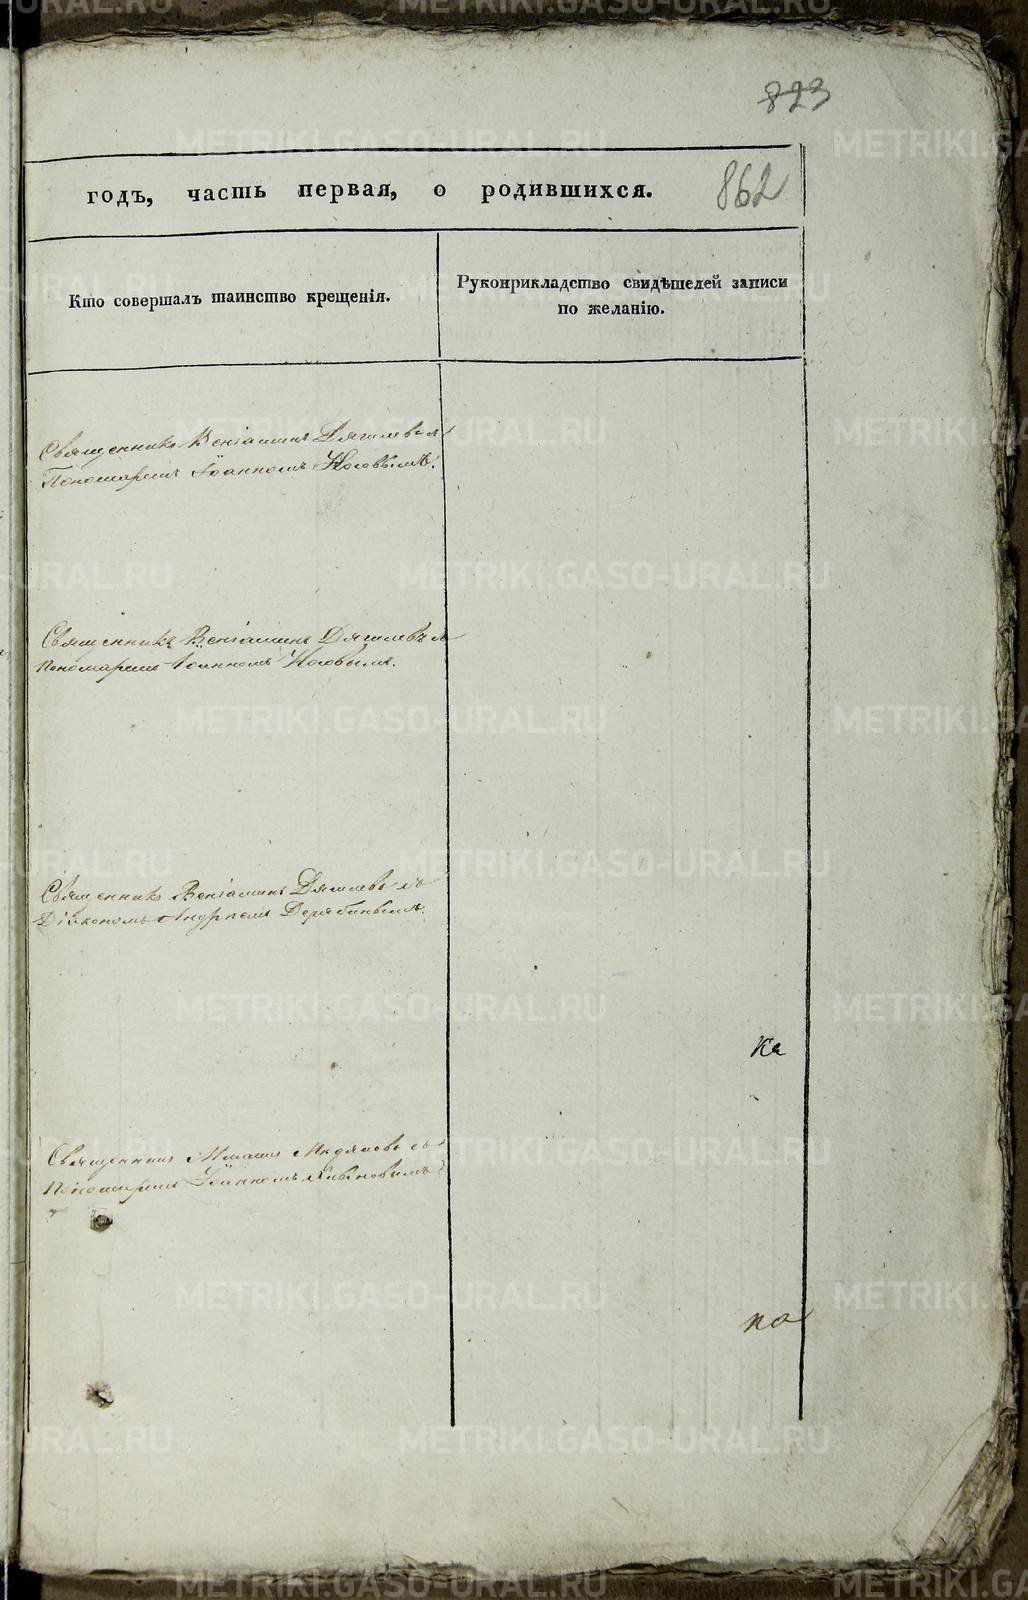 823
862
годъ, часть первая, о родившихся.
Кто совершалъ таинство крещенія.
Рукоприкладство свидѣтелей записи
по желанію.
Священникъ Веніаминъ Дягилевъ съ
Пономаремъ Іоанномъ Носовымъ.
Священникъ Веніаминъ Дягилевъ съ
Пономаремъ Іоанномъ Носовымъ.
Священникъ Веніаминъ Дягилевъ съ
Діакономъ Андреемъ Дерябинымъ.
Священникъ съ
Пономаремъ Іоанномъ
METRIKI.GASO-URAL.RU